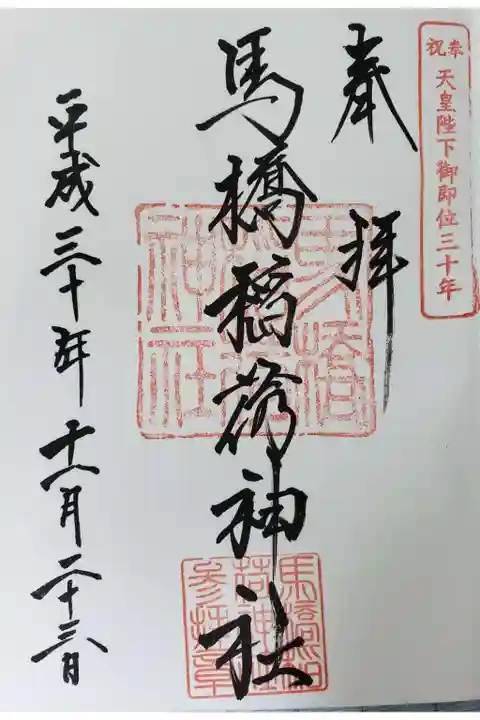 奉祝
天皇陛下御即位三十年
奉拝
馬橋稲荷神社
平成三十年十一月二十三日
馬橋
稲荷
神社
馬橋稲
荷神社
参拝章